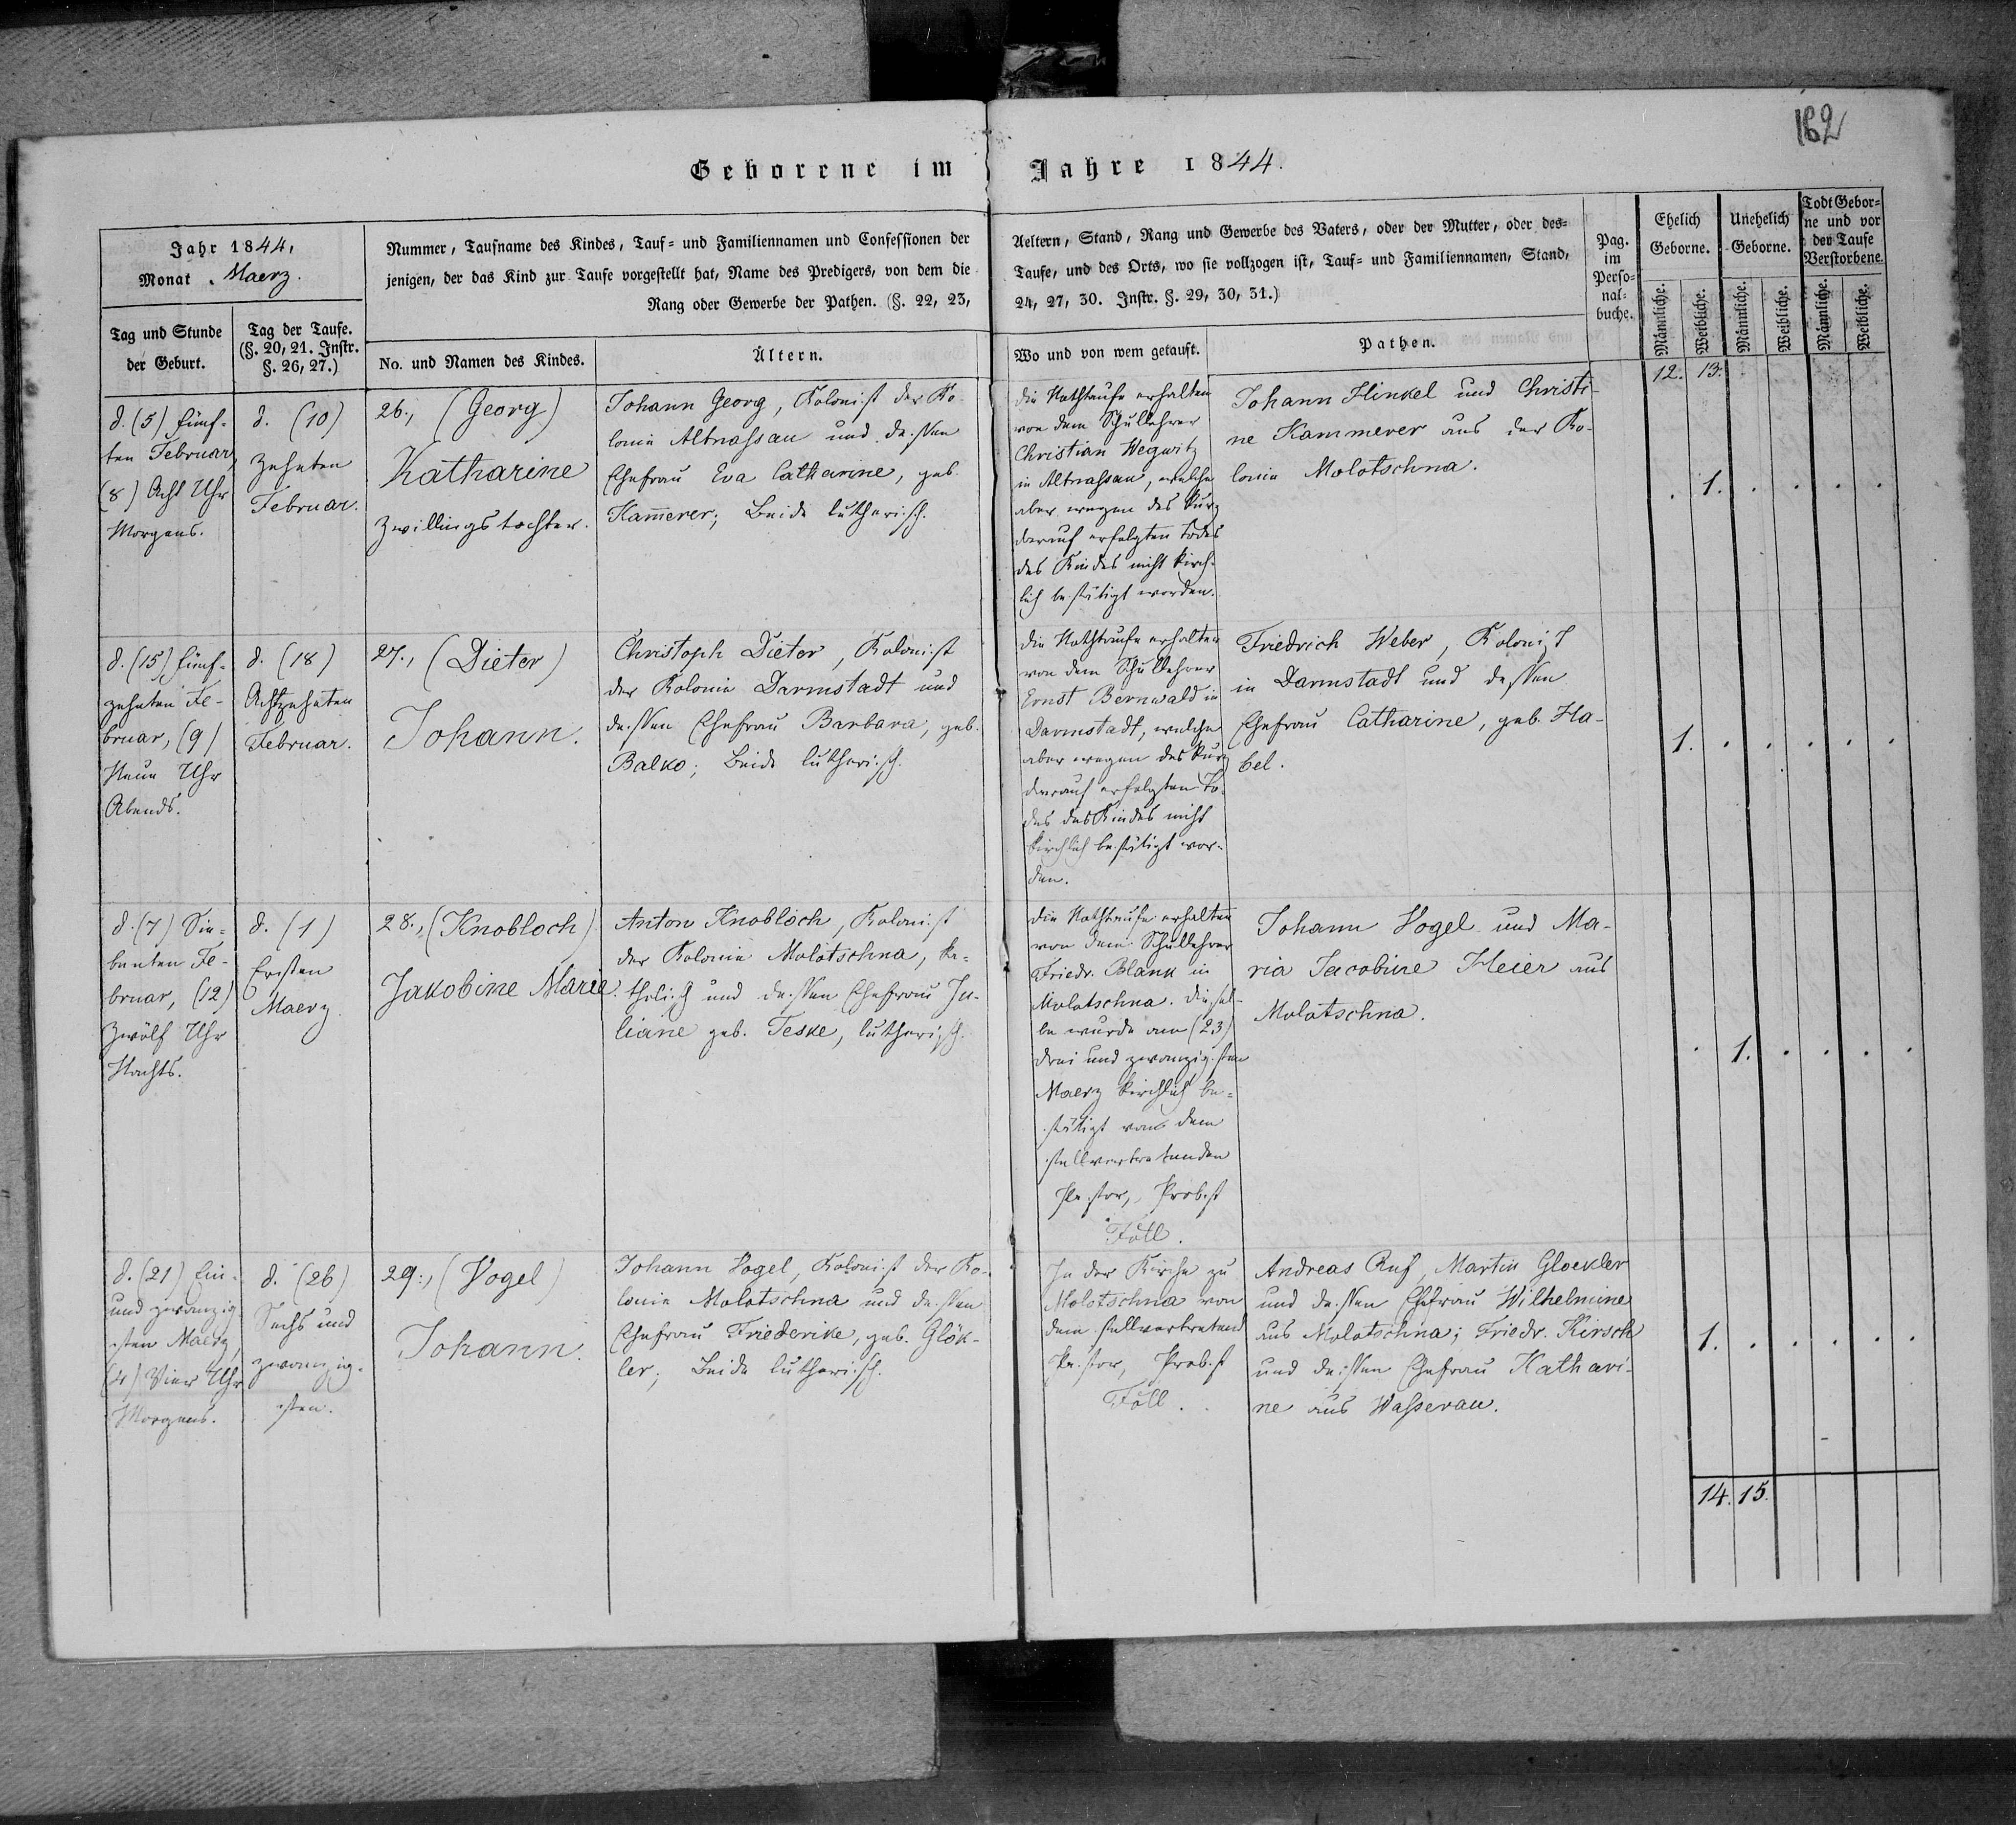 162
Geborene im Jahre 1844.
Jahr 1844,
Monat Maerz.
Tag und Stunde
der Geburt.
Tag der Taufe.
(§. 20, 21. Instr.
§. 26, 27.)
Nummer, Taufname des Kindes, Tauf- und Familiennamen und Confessionen der
jenigen, der das Kind zur Taufe vorgestellt hat, Name des Predigers, von dem die
Rang oder Gewerbe der Pathen. (§. 22, 23,
No. und Namen des Kindes.
Ältern.
Aeltern, Stand, Rang und Gewerbe des Vaters, oder der Mutter, oder des-
Taufe, und des Orts, wo sie vollzogen ist, Tauf- und Familiennamen, Stand,
24, 27, 30. Instr. §. 29, 30, 31.)
Wo und von wem getauft.
Pathen.
Pag.
im
Perso-
nal-
buche.
Ehelich
Geborne.
Unehelich
Geborne.
Todt Gebor-
ne und vor
der Taufe
Verstorbene.
Männliche.
Weibliche.
Männliche.
Weibliche.
Männliche.
Weibliche.
12. 13.
d. (5) fünf-
ten Februar,
(8) Acht Uhr
Morgens.
d. (10)
Zehnten
Februar.
26., (Georg)
Katharine
Zwillingstochter.
Johann Georg, Kolonist der Ko-
lonie Altnassau und dessen
Ehefrau Eva Catharine, geb.
Kam̄erer; Beide lutherisch.
Die Nothtaufe erhalten
von dem Schullehrer
Christian Wegwitz
in Altnassau, welche
aber wegen des kurz
darauf erfolgten Todes
des Kindes nicht kirch-
lich bestätigt worden.
Johann Hinkel und Christi-
ne Kammerer aus der Ko-
lonie Molotschna.
. 1. . . . .
d. (15) fünf-
zehnten Fe-
bruar, (9)
Neun Uhr
Abends.
d. (18)
Achtzehnten
Februar.
27., (Dieter)
Johann.
Christoph Dieter, Kolonist
der Kolonie Darmstadt und
dessen Ehefrau Barbara, geb.
Balko; Beide lutherisch.
Die Nothtaufe erhalten
von dem Schullehrer
Ernst Bernwald in
Darmstadt, welche
aber wegen des kurz
darauf erfolgten To-
des des Kindes nicht
kirchlich bestätigt wor-
den.
Friedrich Weber, Kolonist
in Darmstadt und dessen
Ehefrau Catharine, geb. Ha-
bel.
1. . . . . .
d. (7) Sie-
benten Fe-
bruar, (12)
Zwölf Uhr
Nachts.
d. (1)
Ersten
Maerz.
28., (Knobloch)
Jakobine Marie.
Anton Knobloch, Kolonist
der Kolonie Molotschna, ka-
tholisch und dessen Ehefrau Ju-
liane geb. Teske, lutherisch.
Die Nothtaufe erhalten
von dem Schullehrer
Friedr. Blank in
Molotschna. Diesel-
be wurde am (23)
drei und zwanzigsten
Maerz kirchlich be-
stätigt von dem
stellvertretenden
Pastor, Probst
Föll.
Johann Vogel und Ma-
ria Jacobine Heier aus
Molotschna.
. 1. . . . .
d. (21) Ein-
und zwanzig-
sten Maerz,
(4) Vier Uhr
Morgens.
d. (26)
Sechs und
zwanzig-
sten.
29., (Vogel)
Johann.
Johann Vogel, Kolonist der Ko-
lonie Molotschna und dessen
Ehefrau Friederike, geb. Glök-
ler; Beide lutherisch.
In der Kirche zu
Molotschna von
dem stellvertretend
Pastor, Probst
Föll.
Andreas Ruf, Martin Gloekler
und dessen Ehefrau Wilhelmine
aus Molotschna; Friedr. Kirsch
und dessen Ehefrau Kathari-
ne aus Wasserau.
1. . . . . .
14. 15.